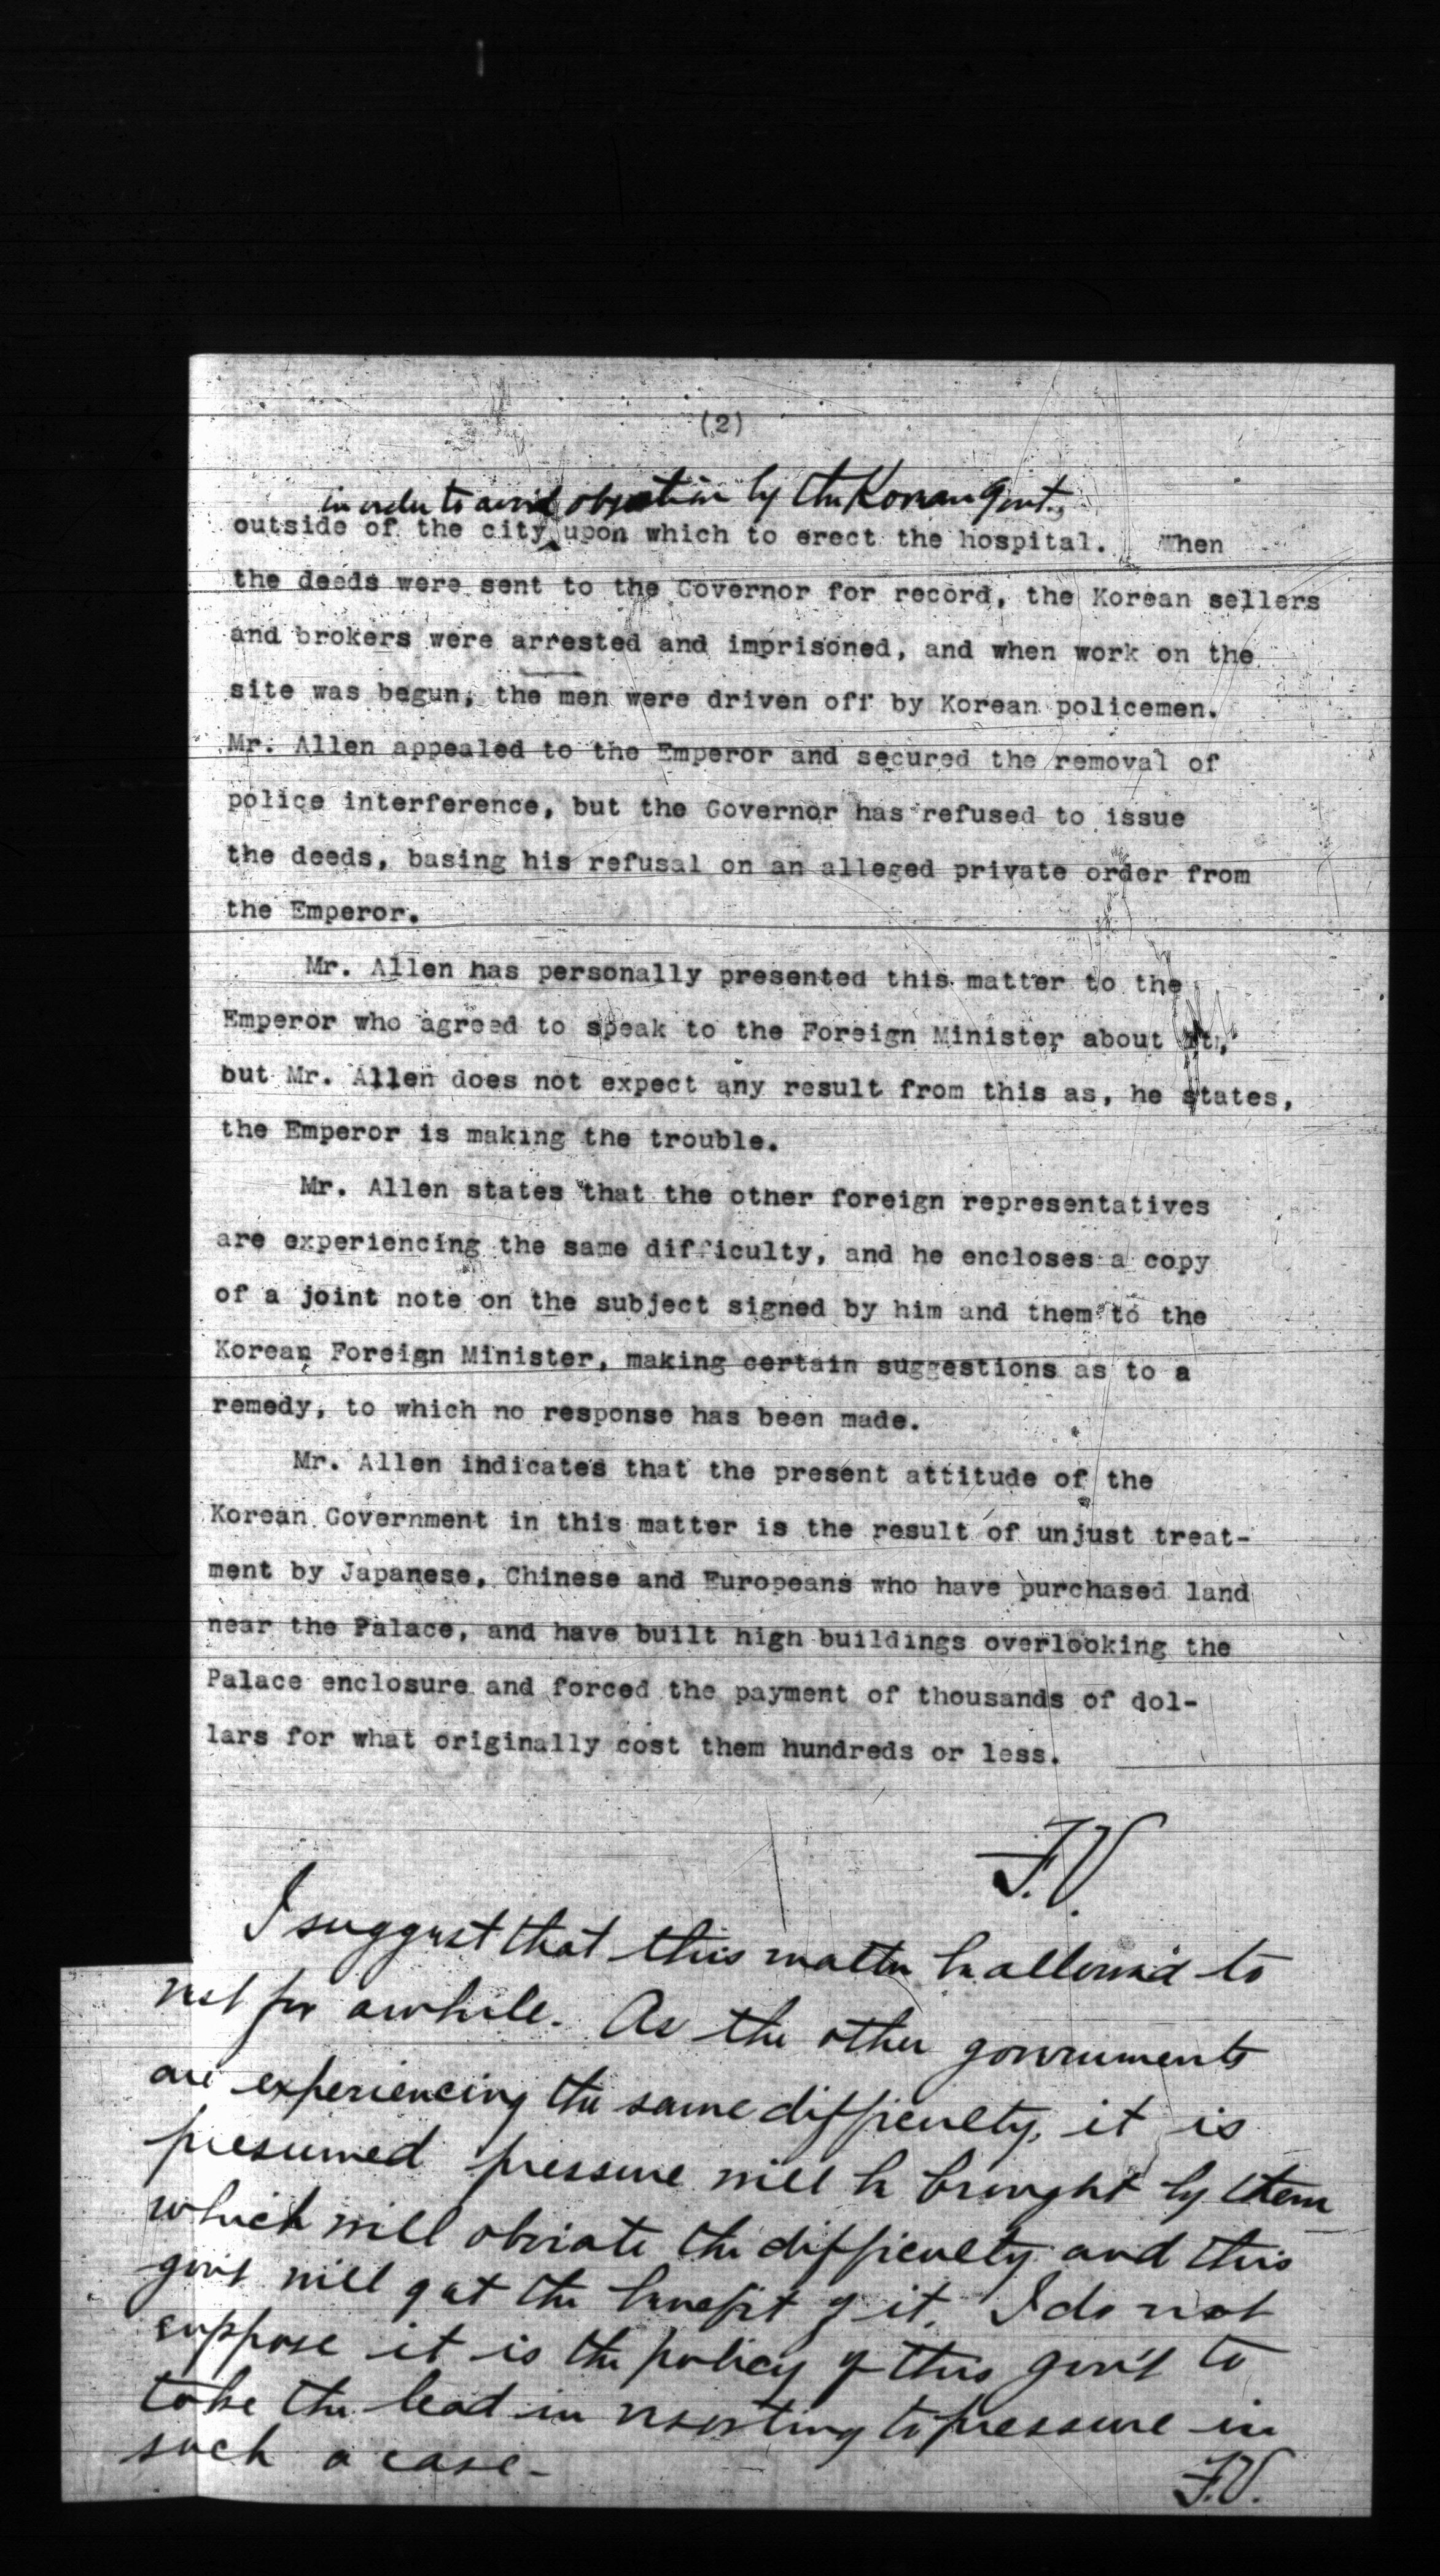 (2)
in order to avoid objection by the Korean Govt.,
outside of the city upon which to erect the hospital. When
the deeds were sent to the Governor for record, the Korean sellers
and brokers were arrested and imprisoned, and when work on the
site was begun, the men were driven off by Korean policemen.
Mr. Allen appealed to the Emperor and secured the removal of
police interference, but the Governor has refused to issue
the deeds, basing his refusal on an alleged private order from
the Emperor.
Mr. Allen has personally presented this matter to the
Emperor who agreed to speak to the Foreign Minister about it,
but Mr. Allen does not expect any result from this as, he states,
the Emperor is making the trouble.
Mr. Allen states that the other foreign representatives
are experiencing the same difficulty, and he encloses a copy
of a joint note on the subject signed by him and them to the
Korean Foreign Minister, making certain suggestions as to a
remedy, to which no response has been made.
Mr. Allen indicates that the present attitude of the
Korean Government in this matter is the result of unjust treat-
ment by Japanese, Chinese and Europeans who have purchased land
near the Palace, and have built high buildings overlooking the
Palace enclosure and forced the payment of thousands of dol-
lars for what originally cost them hundreds or less.
F.V.
I suggest that this matter be allowed to
rest for awhile. As the other governments
are experiencing the same difficulty, it is
presumed pressure will be brought by them
which will obviate the difficulty and this
gov't will get the benefit of it. I do not
suppose it is the policy of this gov't to
take the lead in resorting to pressure in
such a case-
F.V.